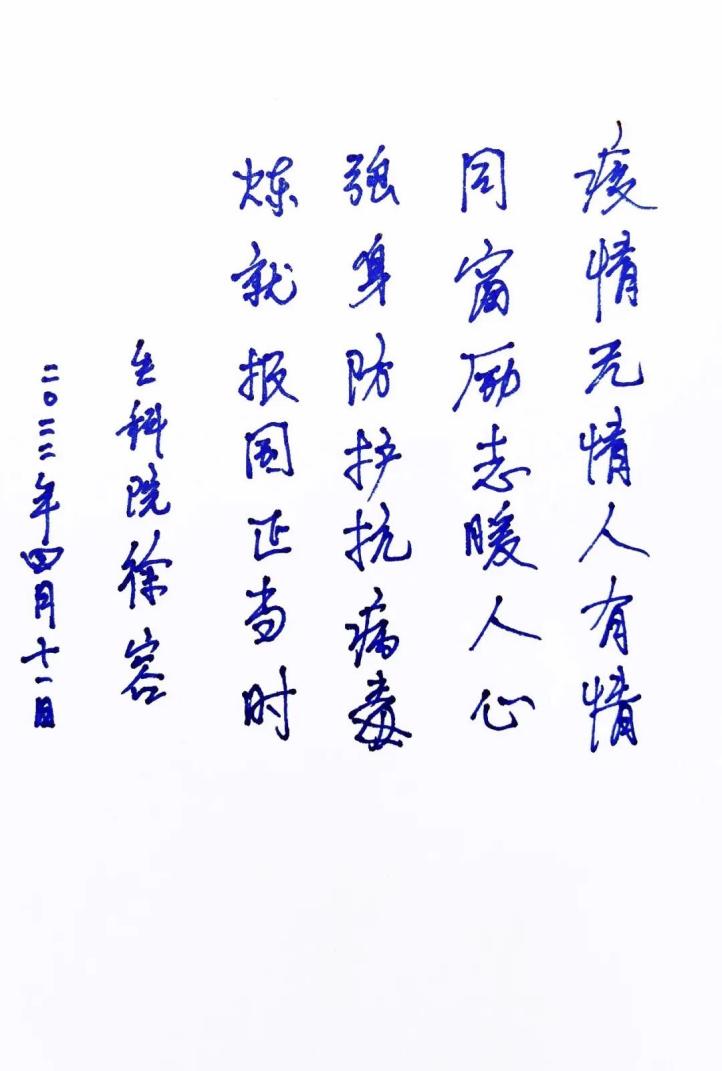 疫情无情人有情
同窗励志暖人心
强身防护抗病毒
炼就报国正当时
生科院徐容
二〇二二年四月十一日